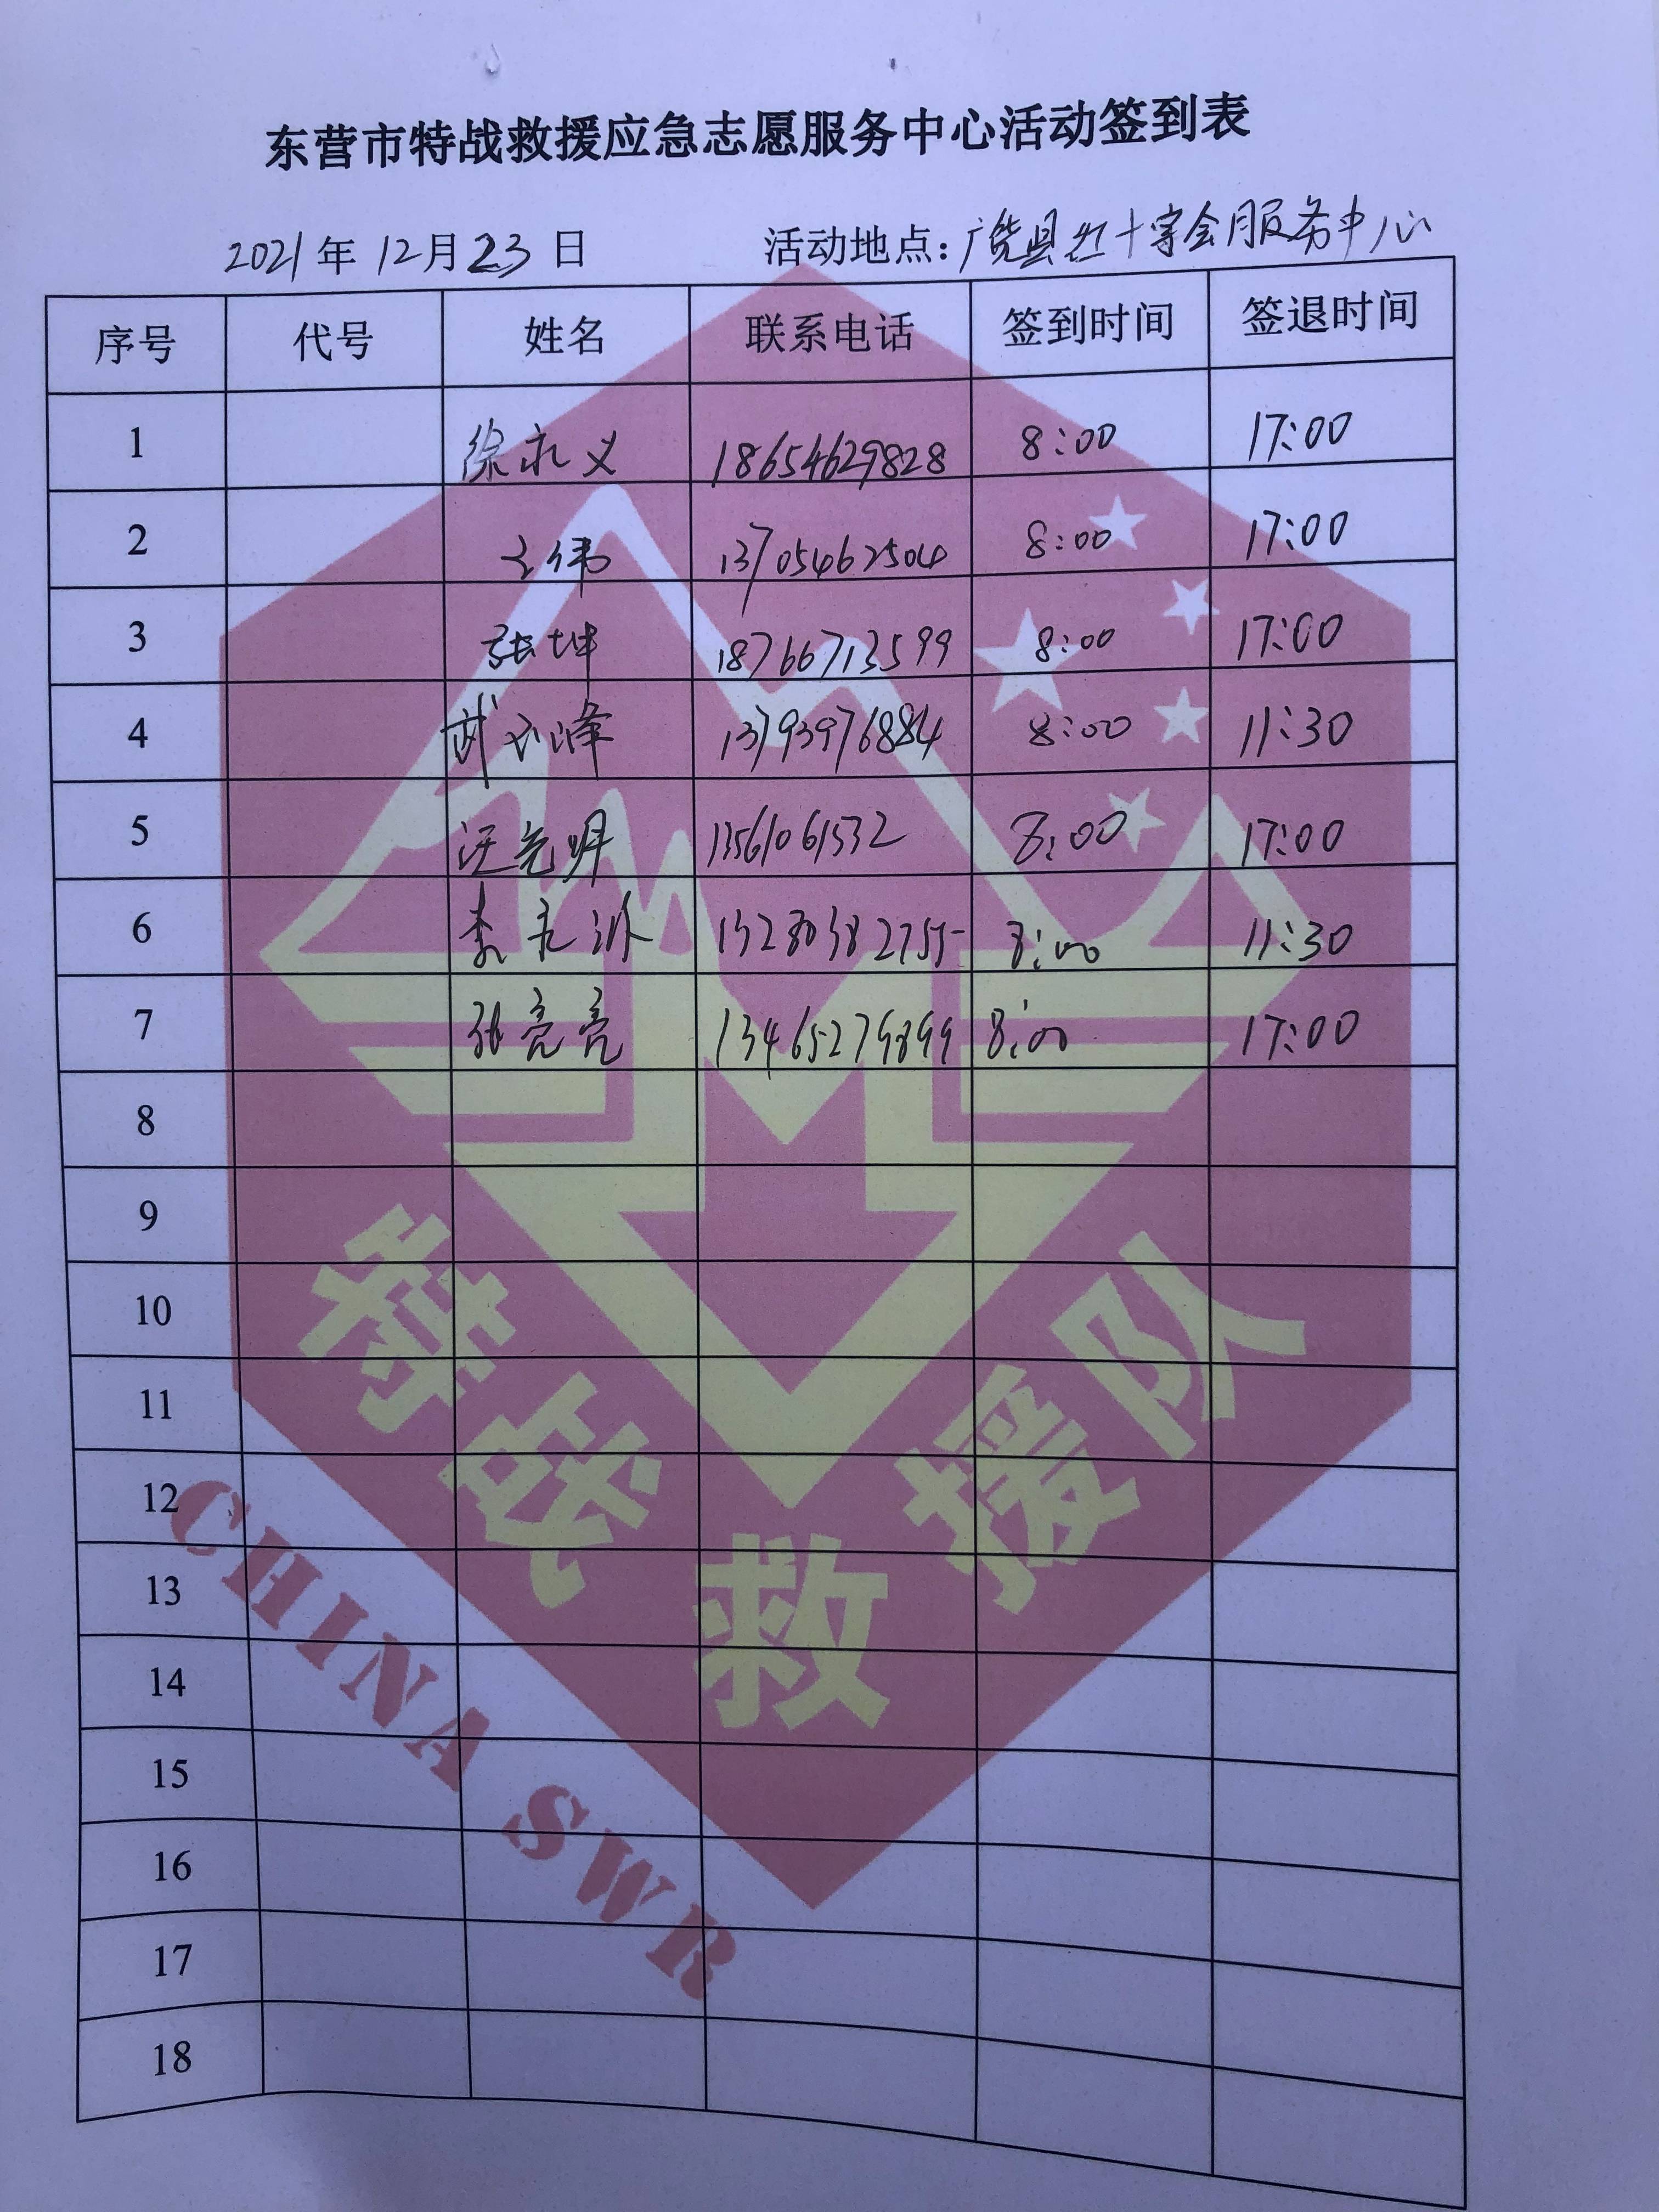 东营市特战救援应急志愿服务中心活动签到表
2021年12月23日 活动地点：广饶县红十字会服务中心
序号 代号 姓名 联系电话 签到时间 签退时间
1 徐永义 18654629828 8:00 17:00
2 王伟 13705462504 8:00 17:00
3 张坤 18766713599 8:00 17:00
4 武玉峰 13793976884 8:00 11:30
5 汪光明 13561061532 8:00 17:00
6 13280382755 8:00 11:30
7 张亮亮 13465279899 8:00 17:00
8
9
10
11
12
13
14
15
16
17
18
特战救援队
CHINA SWR